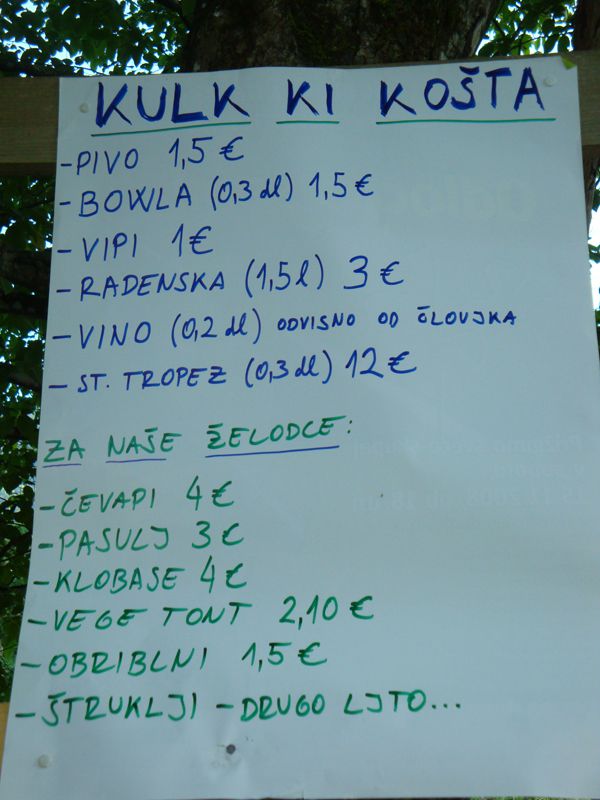 KULK KI KOŠTA
-PIVO 1,5 €
-BOWLA (0,3 dl) 1,5 €
-VIPI 1 €
-RADENSKA (1,5 l) 3 €
-VINO (0,2 dl) ODVISNO OD ČLOVJKA
-ST. TROPEZ (0,3 dl) 12 €
ZA NAŠE ŽELODCE:
-ČEVAPI 4 €
-PASULJ 3 €
-KLOBASE 4 €
-VEGE TONT 2,10 €
-OBRIBLNI 1,5 €
-ŠTRUKLJI -DRUGO LJTO...